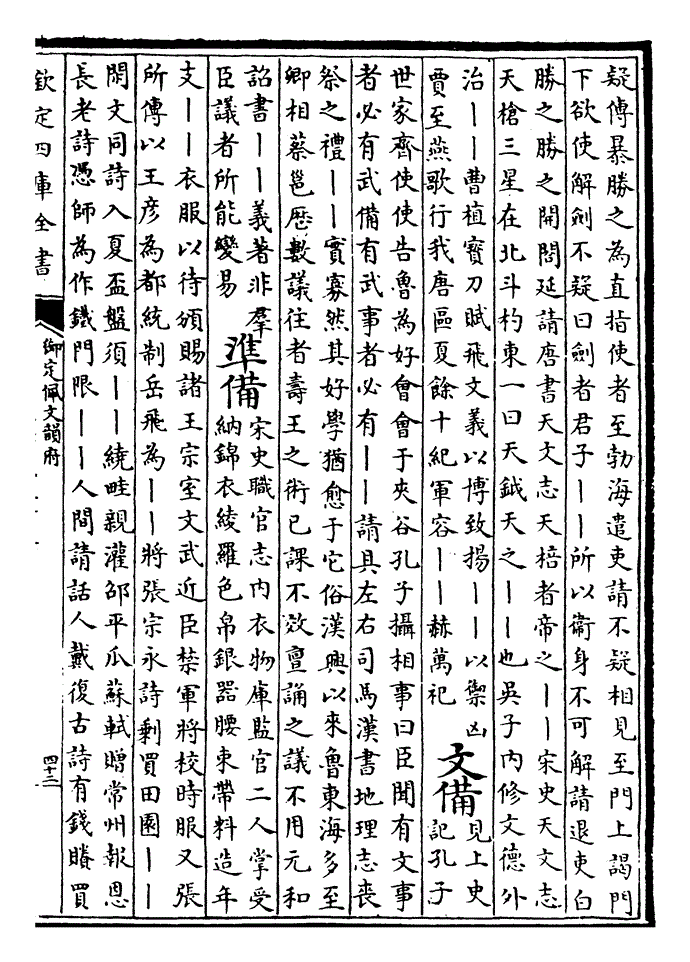 疑傳暴勝之為直指使者至勃海遣吏請不疑相見至門上謁門
下欲使解劍不疑曰劍者君子丨丨所以衛身不可解請退吏白
勝之勝之開閤延請唐書天文志天棓者帝之丨丨宋史天文志
天槍三星在北斗杓東一曰天鉞天之丨丨也吳子內修文德外
治丨丨曹植寳刀賦飛文義以博致揚丨丨以禦凶
賈至燕歌行我唐區夏餘十紀軍容丨丨赫萬祀
文備
見上史
記孔子
世家齊使使告魯為好會會于夾谷孔子攝相事曰臣聞有文事
者必有武備有武事者必有丨丨請具左右司馬漢書地理志喪
祭之禮丨丨實寡然其好學猶愈于它俗漢興以來魯東海多至
卿相蔡邕歴數議往者壽王之術已課不效亶誦之議不用元和
詔書丨丨義著非羣
臣議者所能變易
準備
宋史職官志内衣物庫監官二人掌受
納錦衣綾羅色帛銀器腰束帶料造年
支丨丨衣服以待頒賜諸王宗室文武近臣禁軍將校時服又張
所傳以王彦為都統制岳飛為丨丨將張宗永詩剰買田園丨丨
閒文同詩入夏盃盤須丨丨繞畦親灌邵平瓜蘇軾贈常州報恩
長老詩憑師為作鐵門限丨丨人間請話人戴復古詩有錢贖買
欽定四庫全書
御定佩文韻府
四十三